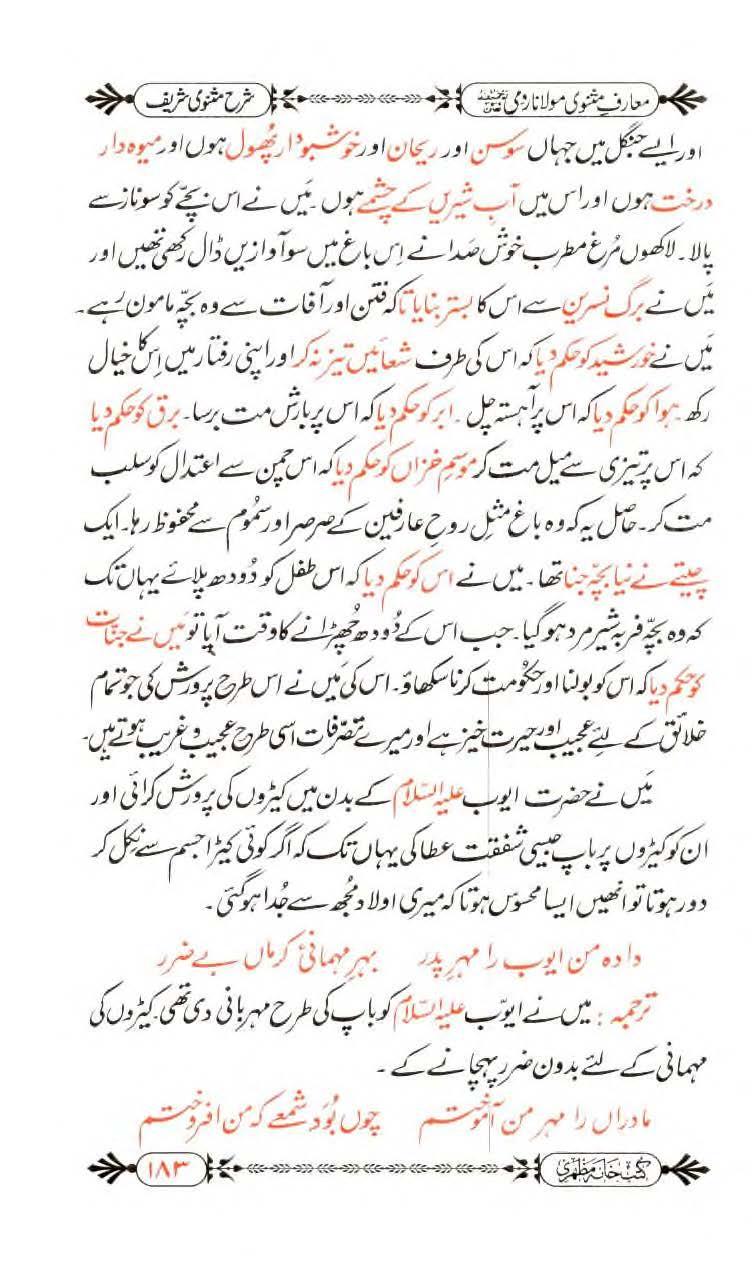 معارفِ مثنوی مولانا رومی رحمۃ اللہ علیہ
شرح مثنوی شریف
اور ایسے جنگل میں جہاں سوسن اور ریحان اور خوشبودار پُھول ہوں اور میوہ دار
درخت ہوں اور اس میں آبِ شیریں کے چشمے ہوں۔ میَں نے اس بچّے کو سو ناز سے
پالا۔ لاکھوں مُرغ مطرب خوش صدا نے اِس باغ میں سو آوازیں ڈال رکھی تھیں اور
میَں نے برگِ نسرین سے اس کا بستر بنایا تاکہ فتن اور آفات سے وہ بچّہ مامون رہے۔
میَں نے خورشید کو حکم دیا کہ اس کی طرف شعائیں تیز نہ کر اور اپنی رفتار میں اِس کا خیال
رکھ۔ ہوا کو حکم دیا کہ اس پر آہستہ چل۔ ابر کو حکم دیا کہ اس پر بارش مت برسا۔ برق کو حکم دیا
کہ اس پر تیزی سے میل مت کر موسمِ خزاں کو حکم دیا کہ اس چمن سے اعتدال کو سلب
مت کر۔ حاصل یہ کہ وہ باغ مثلِ روحِ عارفین کے صرصر اور سَموُم سے محفوظ رہا۔ ایک
چیتے نے نیا بچّہ جنا تھا۔ میں نے اس کو حکم دیا کہ اس طفل کو دُودھ پلائے یہاں تک
کہ وہ بچّہ فربہ شیر مرد ہو گیا۔ جب اس کے دُودھ چُھڑانے کا وقت آیا تو میَں نے جنّات
کو حکم دیا کہ اس کو بولنا اور حکُومت کرنا سکھاؤ۔ اس کی میَں نے اس طرح پرورش کی جو تمام
خلائق کے لئے عجیب اور حیرت خیز ہے اور میرے تصّرفات اسی طرح عجیب و غریب ہوتے ہیں۔
میَں نے حضرت ایوب علیہ السّلام کے بدن میں کیڑوں کی پرورش کرائی اور
ان کو کیڑوں پر باپ جیسی شفقت عطا کی یہاں تک کہ اگر کوئی کیڑا جسم سے نِکل کر
دور ہوتا تو انھیں ایسا محسوس ہوتا کہ میری اولاد مُجھ سے جُدا ہو گئی۔
دادہ من ایوب را مہرِ پدر     بہرِ مہمانیٔ کرماں بے ضرر
ترجمہ : میں نے ایوّب علیہ السّلام کو باپ کی طرح مہربانی دی تھی۔ کیڑوں کی
مہمانی کے لئے بدون ضرر پہچانے کے ۔
مادراں را مہر من آموختم     چوں بُوَد شمعے کہ من افروختم
کتب خانہ مظہری
۱۸۳